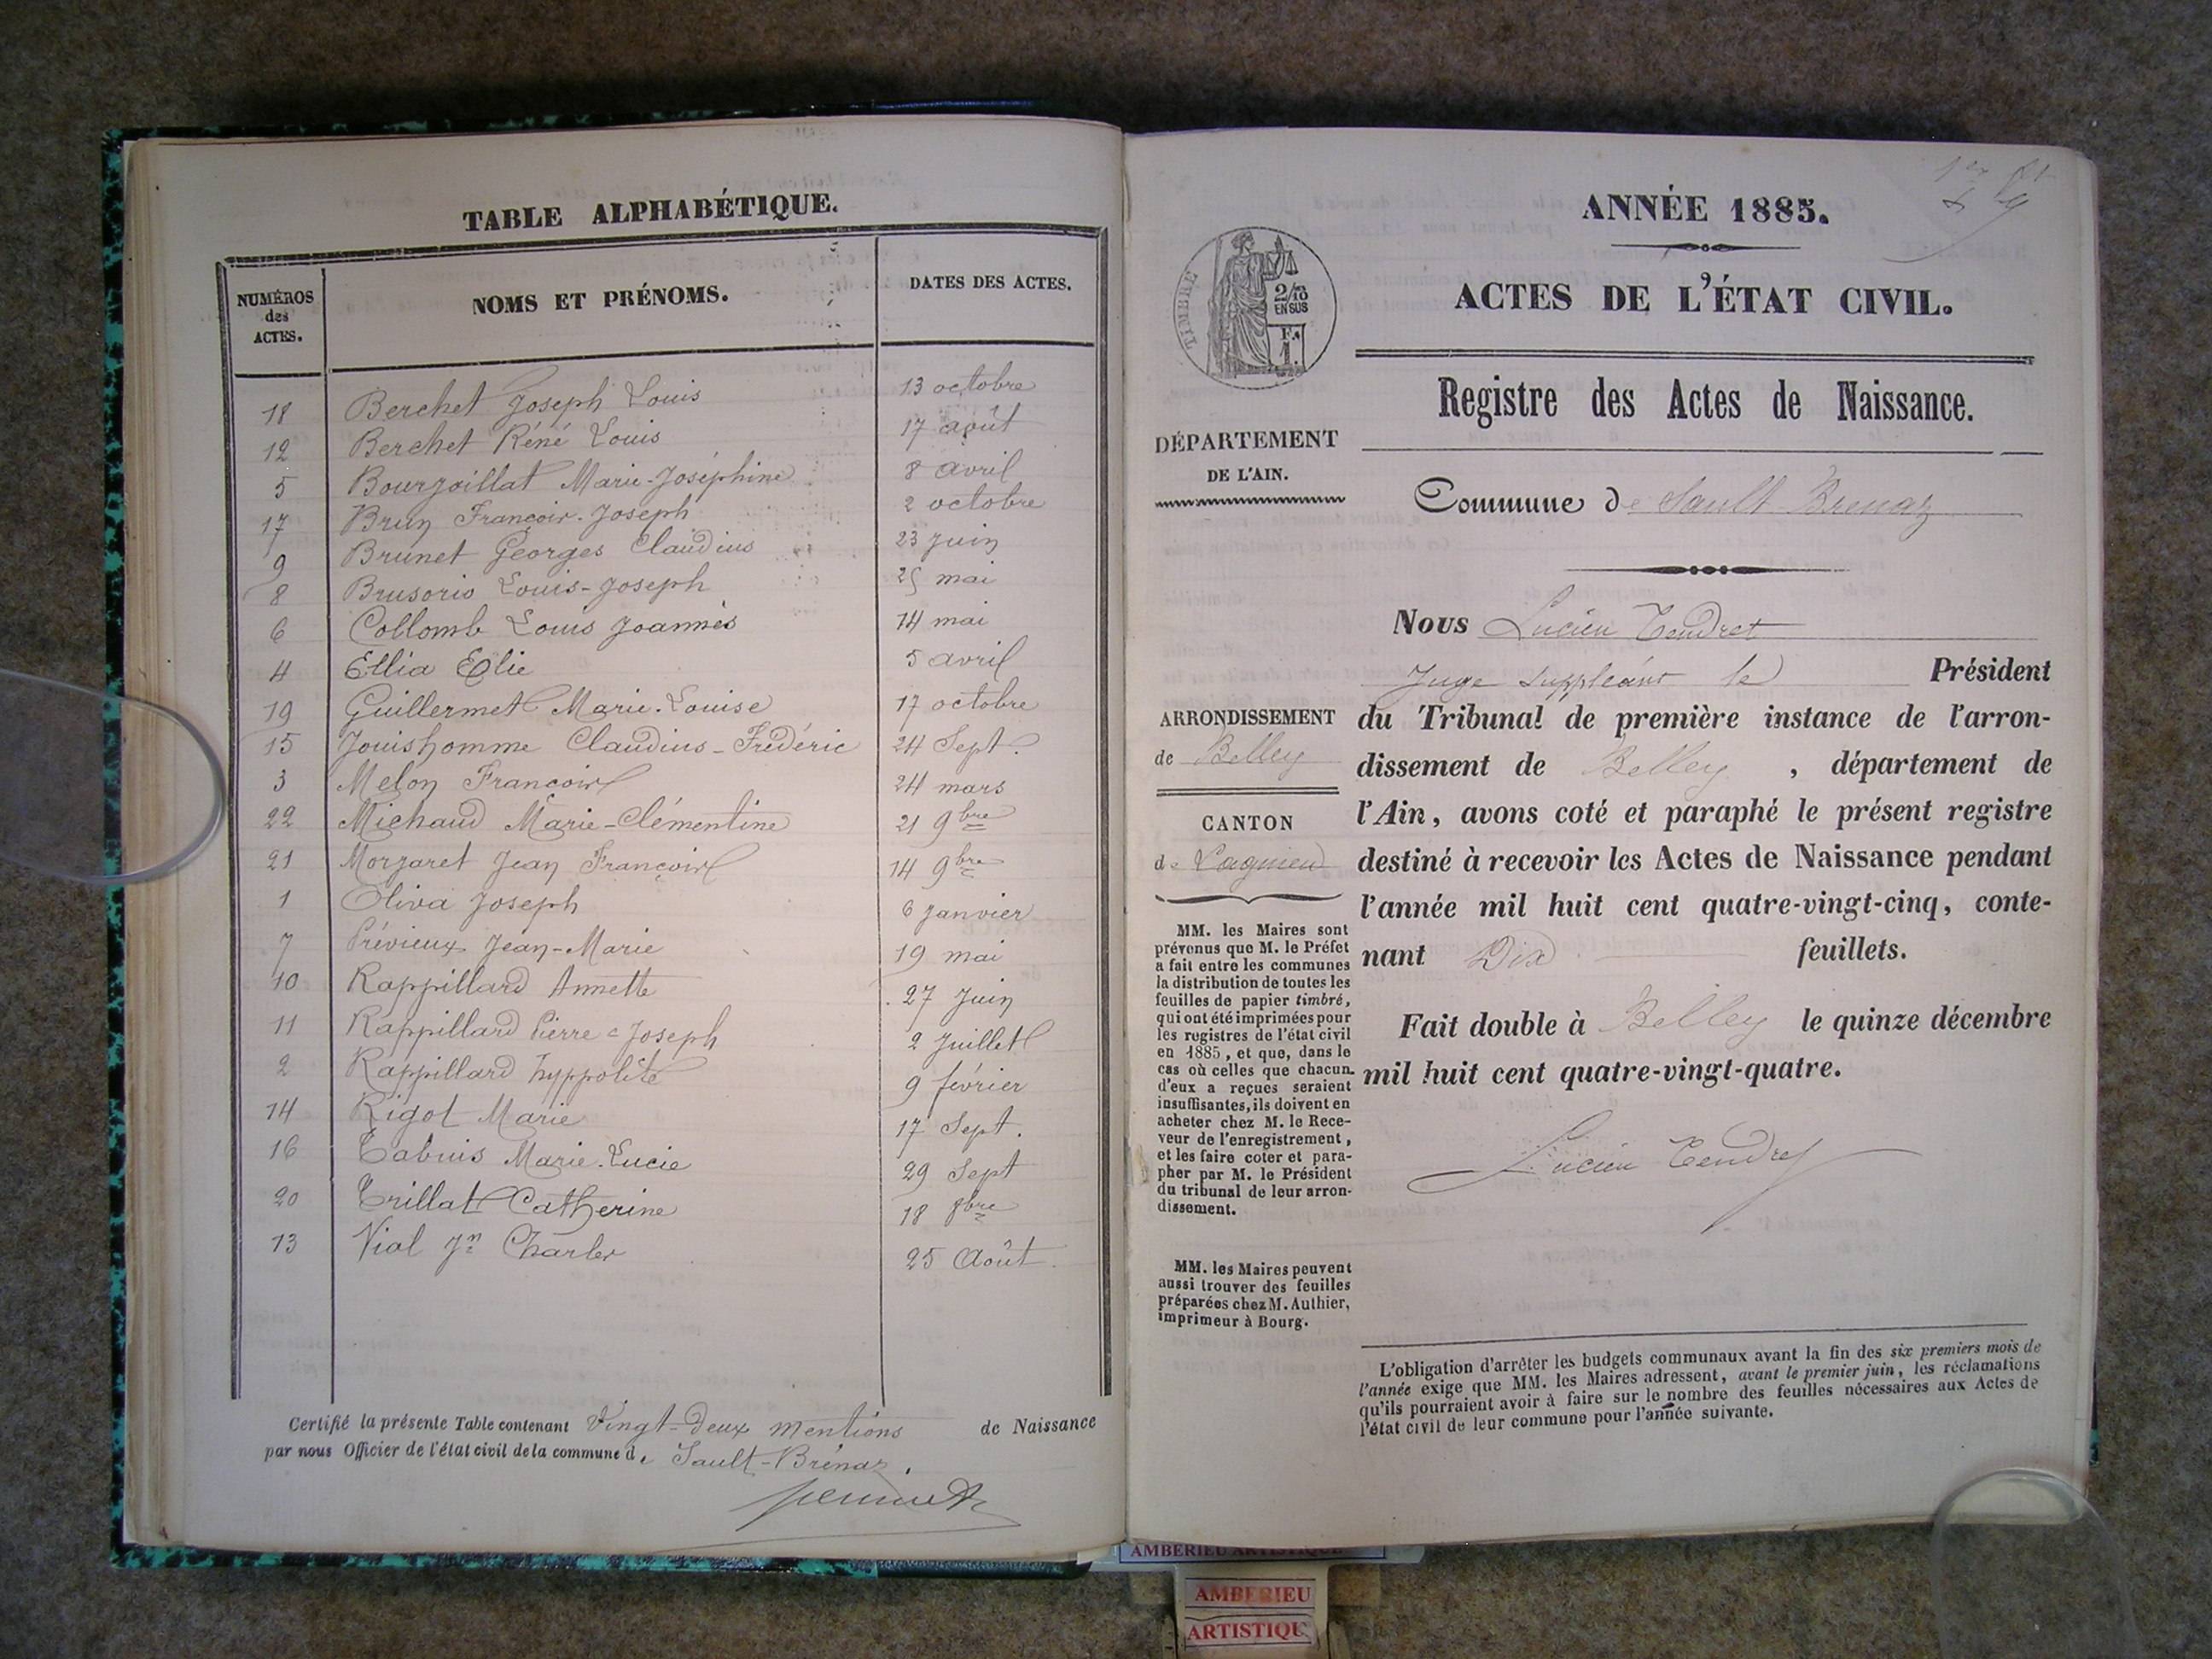 TABLE ALPHABÉTIQUE.
NUMÉROS
des
ACTES.
NOMS ET PRÉNOMS.
DATES DES ACTES.
18 Berchet Joseph Louis 13 octobre
12 Berchet Réné Louis 17 août
5 Bourgoillat Marie-Joséphine 8 avril
17 Brun François-Joseph 2 octobre
9 Brunet Georges Claudius 23 juin
8 Brusorio Louis-Joseph 25 mai
6 Collomb Louis Joannès 14 mai
4 Ellia Elie 5 avril
19 Guillermet Marie-Louise 17 octobre
15 Jouishomme Claudius-Frédéric 24 Sept.
3 Melon François 24 mars
22 Michaud Marie-Clémentine 21 9bre
21 Morgaret Jean François 14 9bre
1 Oliva Joseph 6 Janvier
7 Prévieux Jean-Marie 19 mai
10 Rappillard Annette 27 Juin
11 Rappillard Pierre-Joseph 2 Juillet
2 Rappillard hyppolite 9 février
14 Rigot Marie 17 Sept.
16 Tabuis Marie-Lucie 29 Sept
20 Trillat Catherine 18 8bre
13 Vial Jn Charles 25 Août.
Certifié la présente Table contenant Vingt-deux mentions de Naissance
par nous Officier de l'état civil de la commune de Sault-Brénaz.
ANNÉE 1885.
ACTES DE L'ÉTAT CIVIL.
TIMBRE
2/10
EN SUS
F.
1.
Registre des Actes de Naissance.
DÉPARTEMENT
DE L'AIN.
Commune de Sault-Brenaz
Nous Lucien Tendret
Juge suppléant le Président
du Tribunal de première instance de l'arron-
dissement de Belley, département de
l'Ain, avons coté et paraphé le présent registre
destiné à recevoir les Actes de Naissance pendant
l'année mil huit cent quatre-vingt-cinq, conte-
nant Dix feuillets.
Fait double à Belley le quinze décembre
mil huit cent quatre-vingt-quatre.
Lucien Tendret
ARRONDISSEMENT
de Belley
CANTON
de Lagnieu
MM. les Maires sont
prévenus que M. le Préfet
a fait entre les communes
la distribution de toutes les
feuilles de papier timbré,
qui ont été imprimées pour
les registres de l'état civil
en 1885, et que, dans le
cas où celles que chacun
d'eux a reçues seraient
insuffisantes, ils doivent en
acheter chez M. le Rece-
veur de l'enregistrement,
et les faire coter et para-
pher par M. le Président
du tribunal de leur arron-
dissement.
MM. les Maires peuvent
aussi trouver des feuilles
préparées chez M. Authier,
imprimeur à Bourg.
L'obligation d'arrêter les budgets communaux avant la fin des six premiers mois de
l'année exige que MM. les Maires adressent, avant le premier juin, les réclamations
qu'ils pourraient avoir à faire sur le nombre des feuilles nécessaires aux Actes de
l'état civil de leur commune pour l'année suivante.
AMBERIEU ARTISTIQUE
AMBERIEU
ARTISTIQU